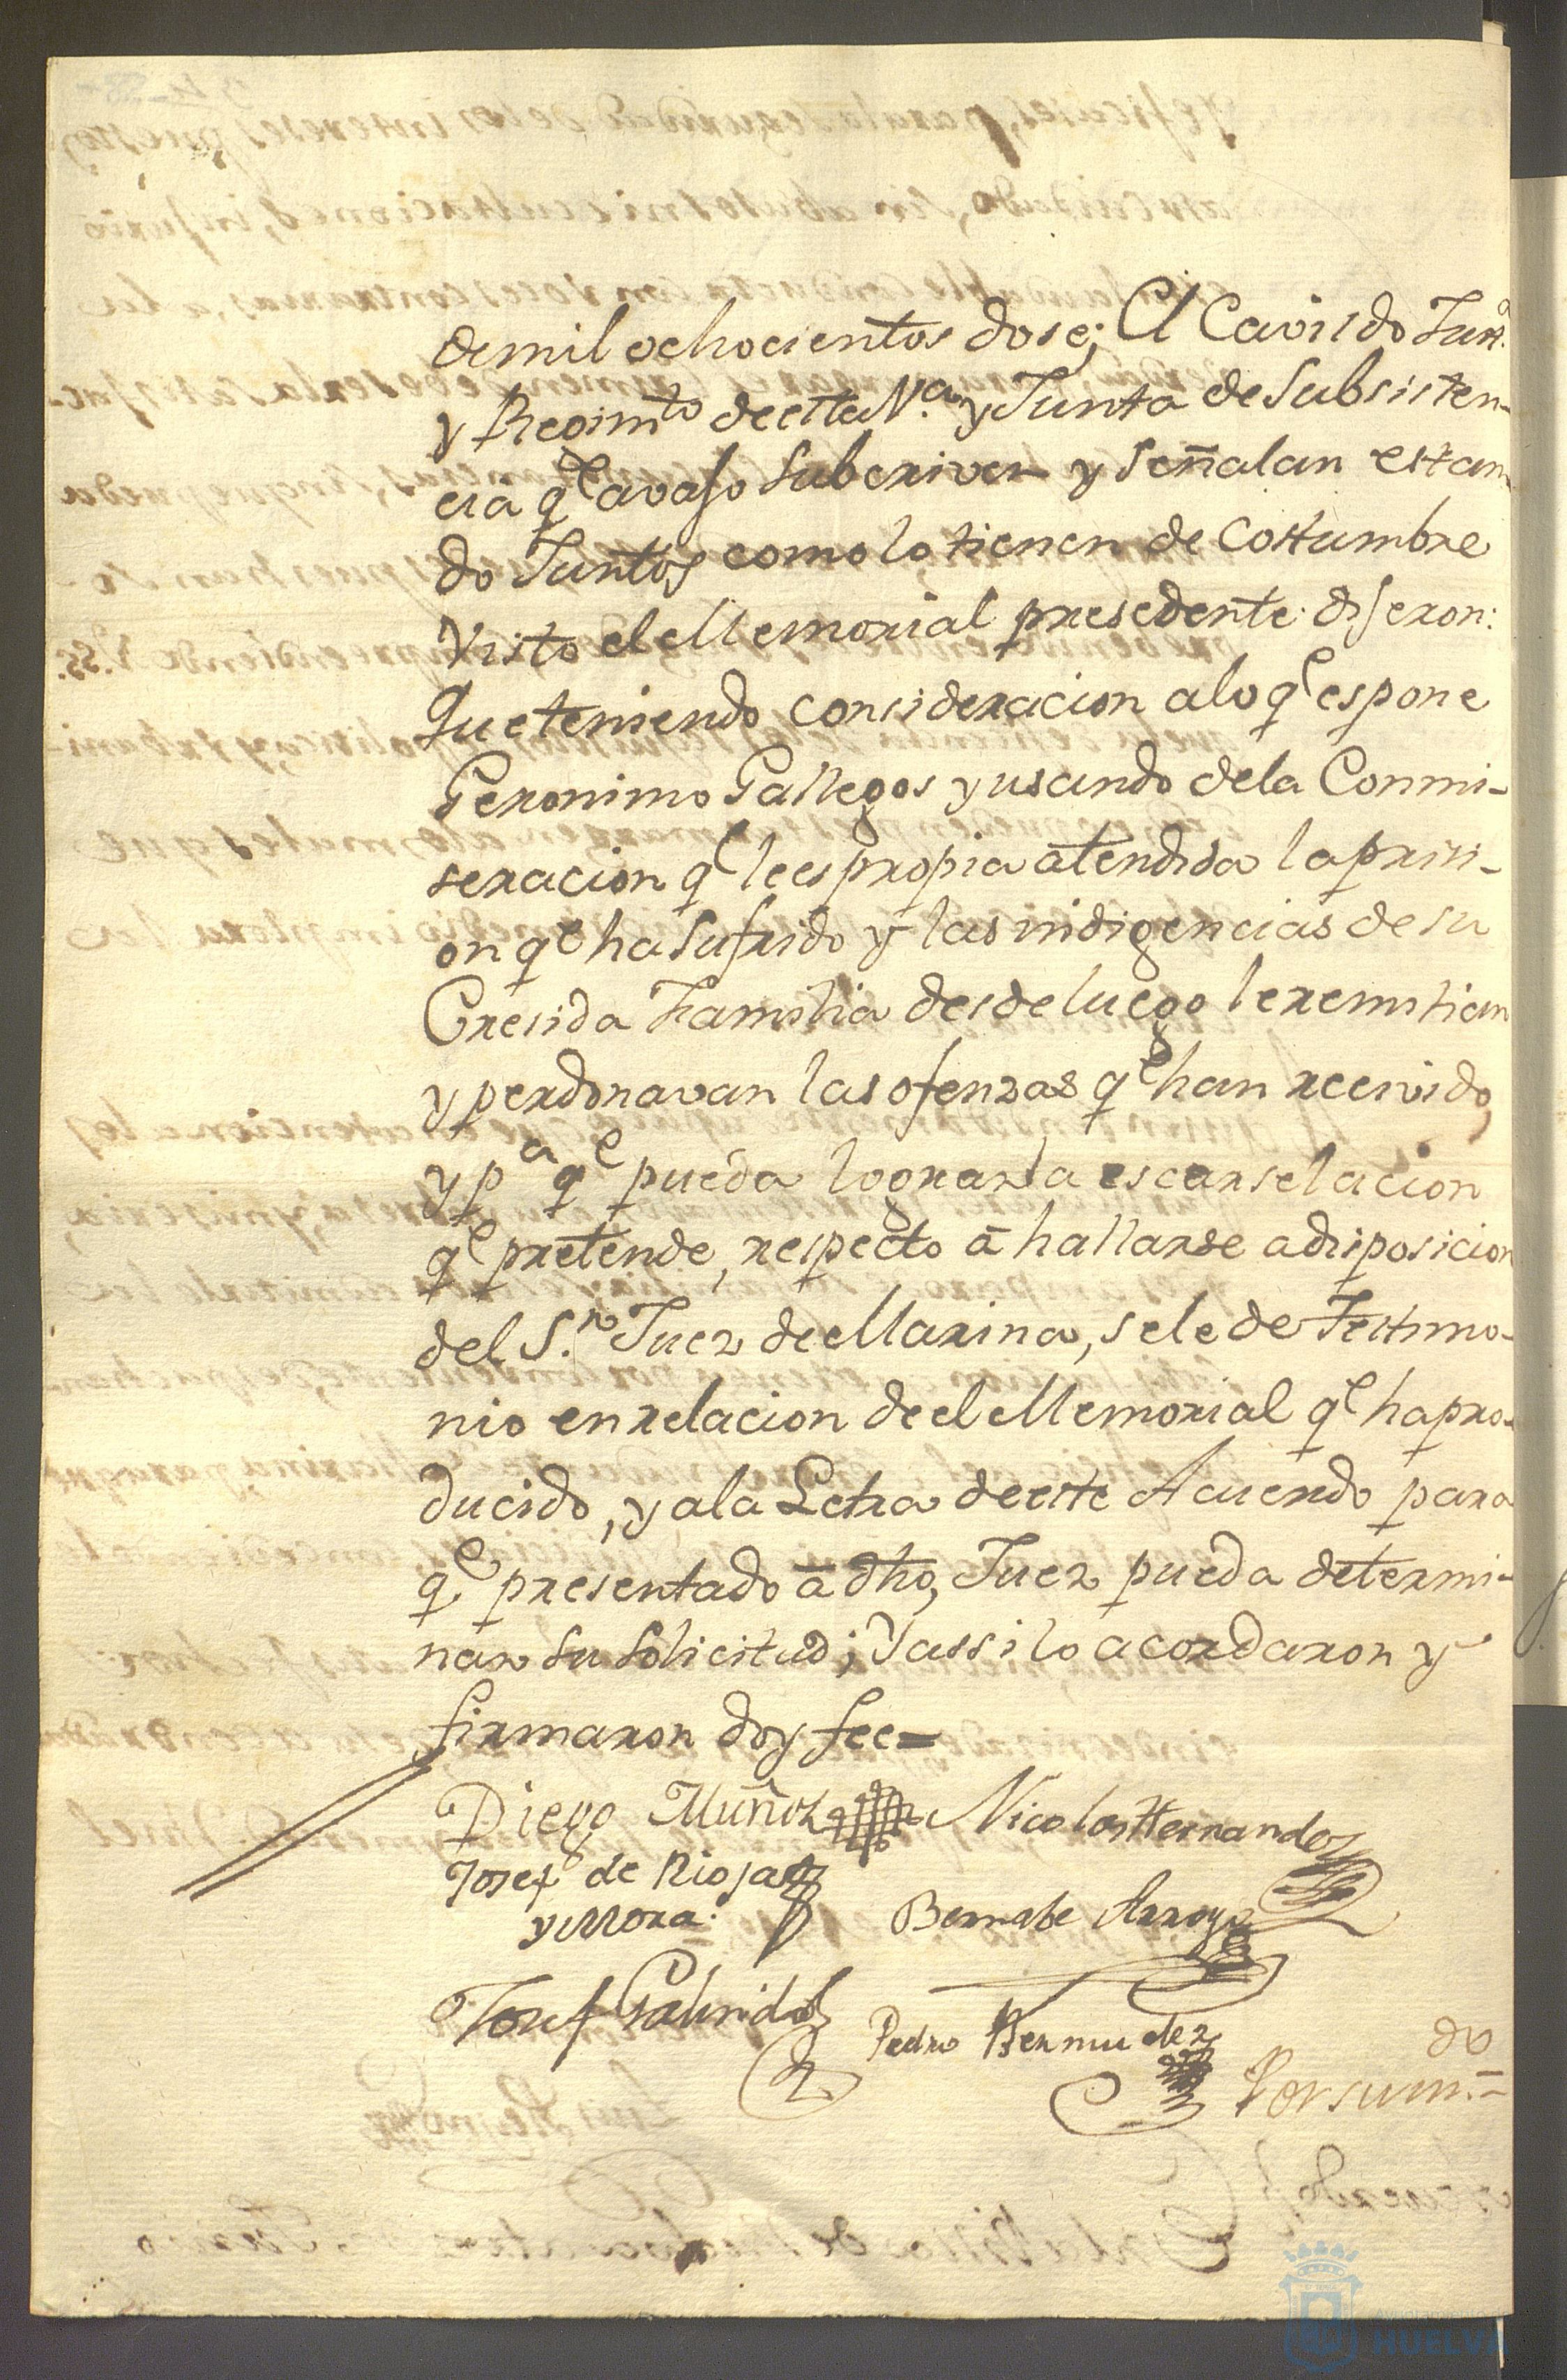 de mil ochocientos dose; El Cavildo Just.a
y Regim.to de esta V.a y Junta de Subsisten-
cia q.e avajo Subcriven y Señalan estan-
do Juntos como lo tienen de costumbre
Visto el Memorial presedente dijeron:
Que teniendo consideracion a lo q.e espone
Geronimo Gallegos y usando de la Conmi-
seracion q.e le es propia atendida la prisi-
on q.e ha Sufrido y las indigencias de su
Cresida Familia desde luego le remitian
y perdonavan las ofenzas q.e han recivido,
y p.a q.e pueda lograr la escarselacion
q.e pretende, respecto á hallarse a disposicion
del S.r Juez de Marina, se le de Testimo-
nio en relacion de el Memorial q.e ha pro-
ducido, y a la Letra de este Acuerdo para
q.e presentado á dho, Juez pueda determi-
nar su Solicitud; Y assi lo acordaron y
firmaron doy fee=
Diego Muñoz Nicolas Hernandez
Josef de Rioja
y Mora. Bernabe Arroyo
Josef Galindo Pedro Bermudez
Por su m.do
HUELVA